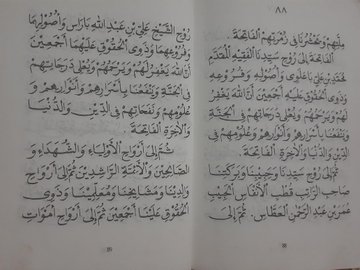 ٨٨
مِلَّتِهِمْ وَيَحْشُرُنَا فِي زُمْرَتِهِمْ الْفَاتِحَةَ
الْفَاتِحَةَ إِلَى رُوحِ سَيِّدِنَا الْفَقِيْهِ الْمُقَدَّمِ
مُحَمَّدِ بْنِ عَلِيّ بَاعَلَوِي وَأُصُوْلِهِ وَفُرُوْعِهِ
وَذَوِى الْحُقُوْقِ عَلَيْهِمْ أَجْمَعِيْنَ أَنَّ اللهَ يَغْفِرُ
لَهُمْ وَيَرْحَمُهُمْ وَيُعْلِى دَرَجَاتِهِمْ فِى الْجَنَّةِ
وَيَنْفَعُنَا بِأَسْرَارِهِمْ وَأَنْوَارِهِمْ وَعُلُوْمِهِمْ فِى
الدِّيْنِ وَالدُّنْيَا وَالْآخِرَةِ الْفَاتِحَةَ.
الْفَاتِحَةَ إِلَى رُوحِ سَيِّدِنَا وَحَبِيْبِنَا وَبَرَكَتِنَا
صَاحِبِ الرَّاتِبِ قُطْبِ الْأَنْفَاسِ الْحَبِيْبِ
عُمَرَ بْنِ عَبْدِ الرَّحْمٰنِ الْعَطَّاسِ. ثُمَّ إِلَى
88
رُوْحِ الشَّيْخِ عَلِيّ بْنِ عَبْدِ اللهِ بَارَاسٍ وَأُصُوْلِهِمَا
وَفُرُوْعِهِمَا وَذَوِى الْحُقُوْقِ عَلَيْهِمَا أَجْمَعِيْنَ
أَنَّ اللهَ يَغْفِرُ لَهُمْ وَيَرْحَمُهُمْ وَيُعْلِى دَرَجَاتِهِمْ
فِى الْجَنَّةِ وَيَنْفَعُنَا بِأَسْرَارِهِمْ وَأَنْوَارِهِمْ وَ
عُلُوْمِهِمْ وَنَفَحَاتِهِمْ فِى الدِّيْنِ وَالدُّنْيَا
وَالْآخِرَةِ الْفَاتِحَةَ.
ثُمَّ إِلَى أَرْوَاحِ الْأَوْلِيَاءِ وَالشُّهَدَاءِ وَ
الصَّالِحِيْنَ وَالْأَئِمَّةِ الرَّاشِدِيْنَ ثُمَّ إِلَى أَرْوَاحِ
وَالِدِيْنَا وَمَشَايِخِنَا وَمُعَلِّمِيْنَا وَذَوِى
الْحُقُوْقِ عَلَيْنَا أَجْمَعِيْنَ ثُمَّ إِلَى أَرْوَاحِ أَمْوَاتِ
89